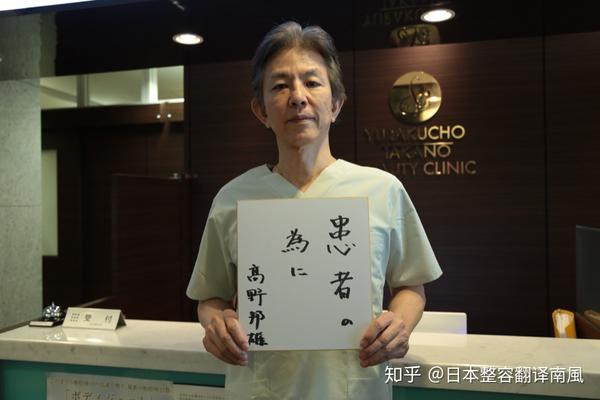 YURAKUCHO
TAKANO
BEAUTY CLINIC
患者の
為に
髙野邦雄
受付
知乎 @日本整容翻译南風